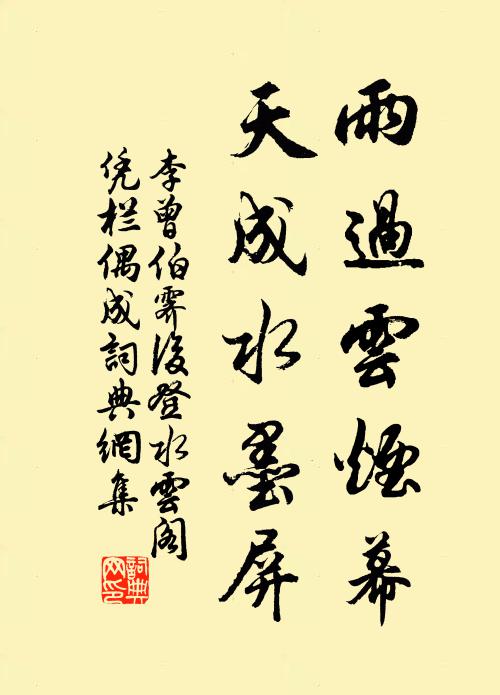 雨過雲煙幕
天成水墨屏
李曾伯霽後登水雲閣
凭栏偶成詞典網集
詞典网印